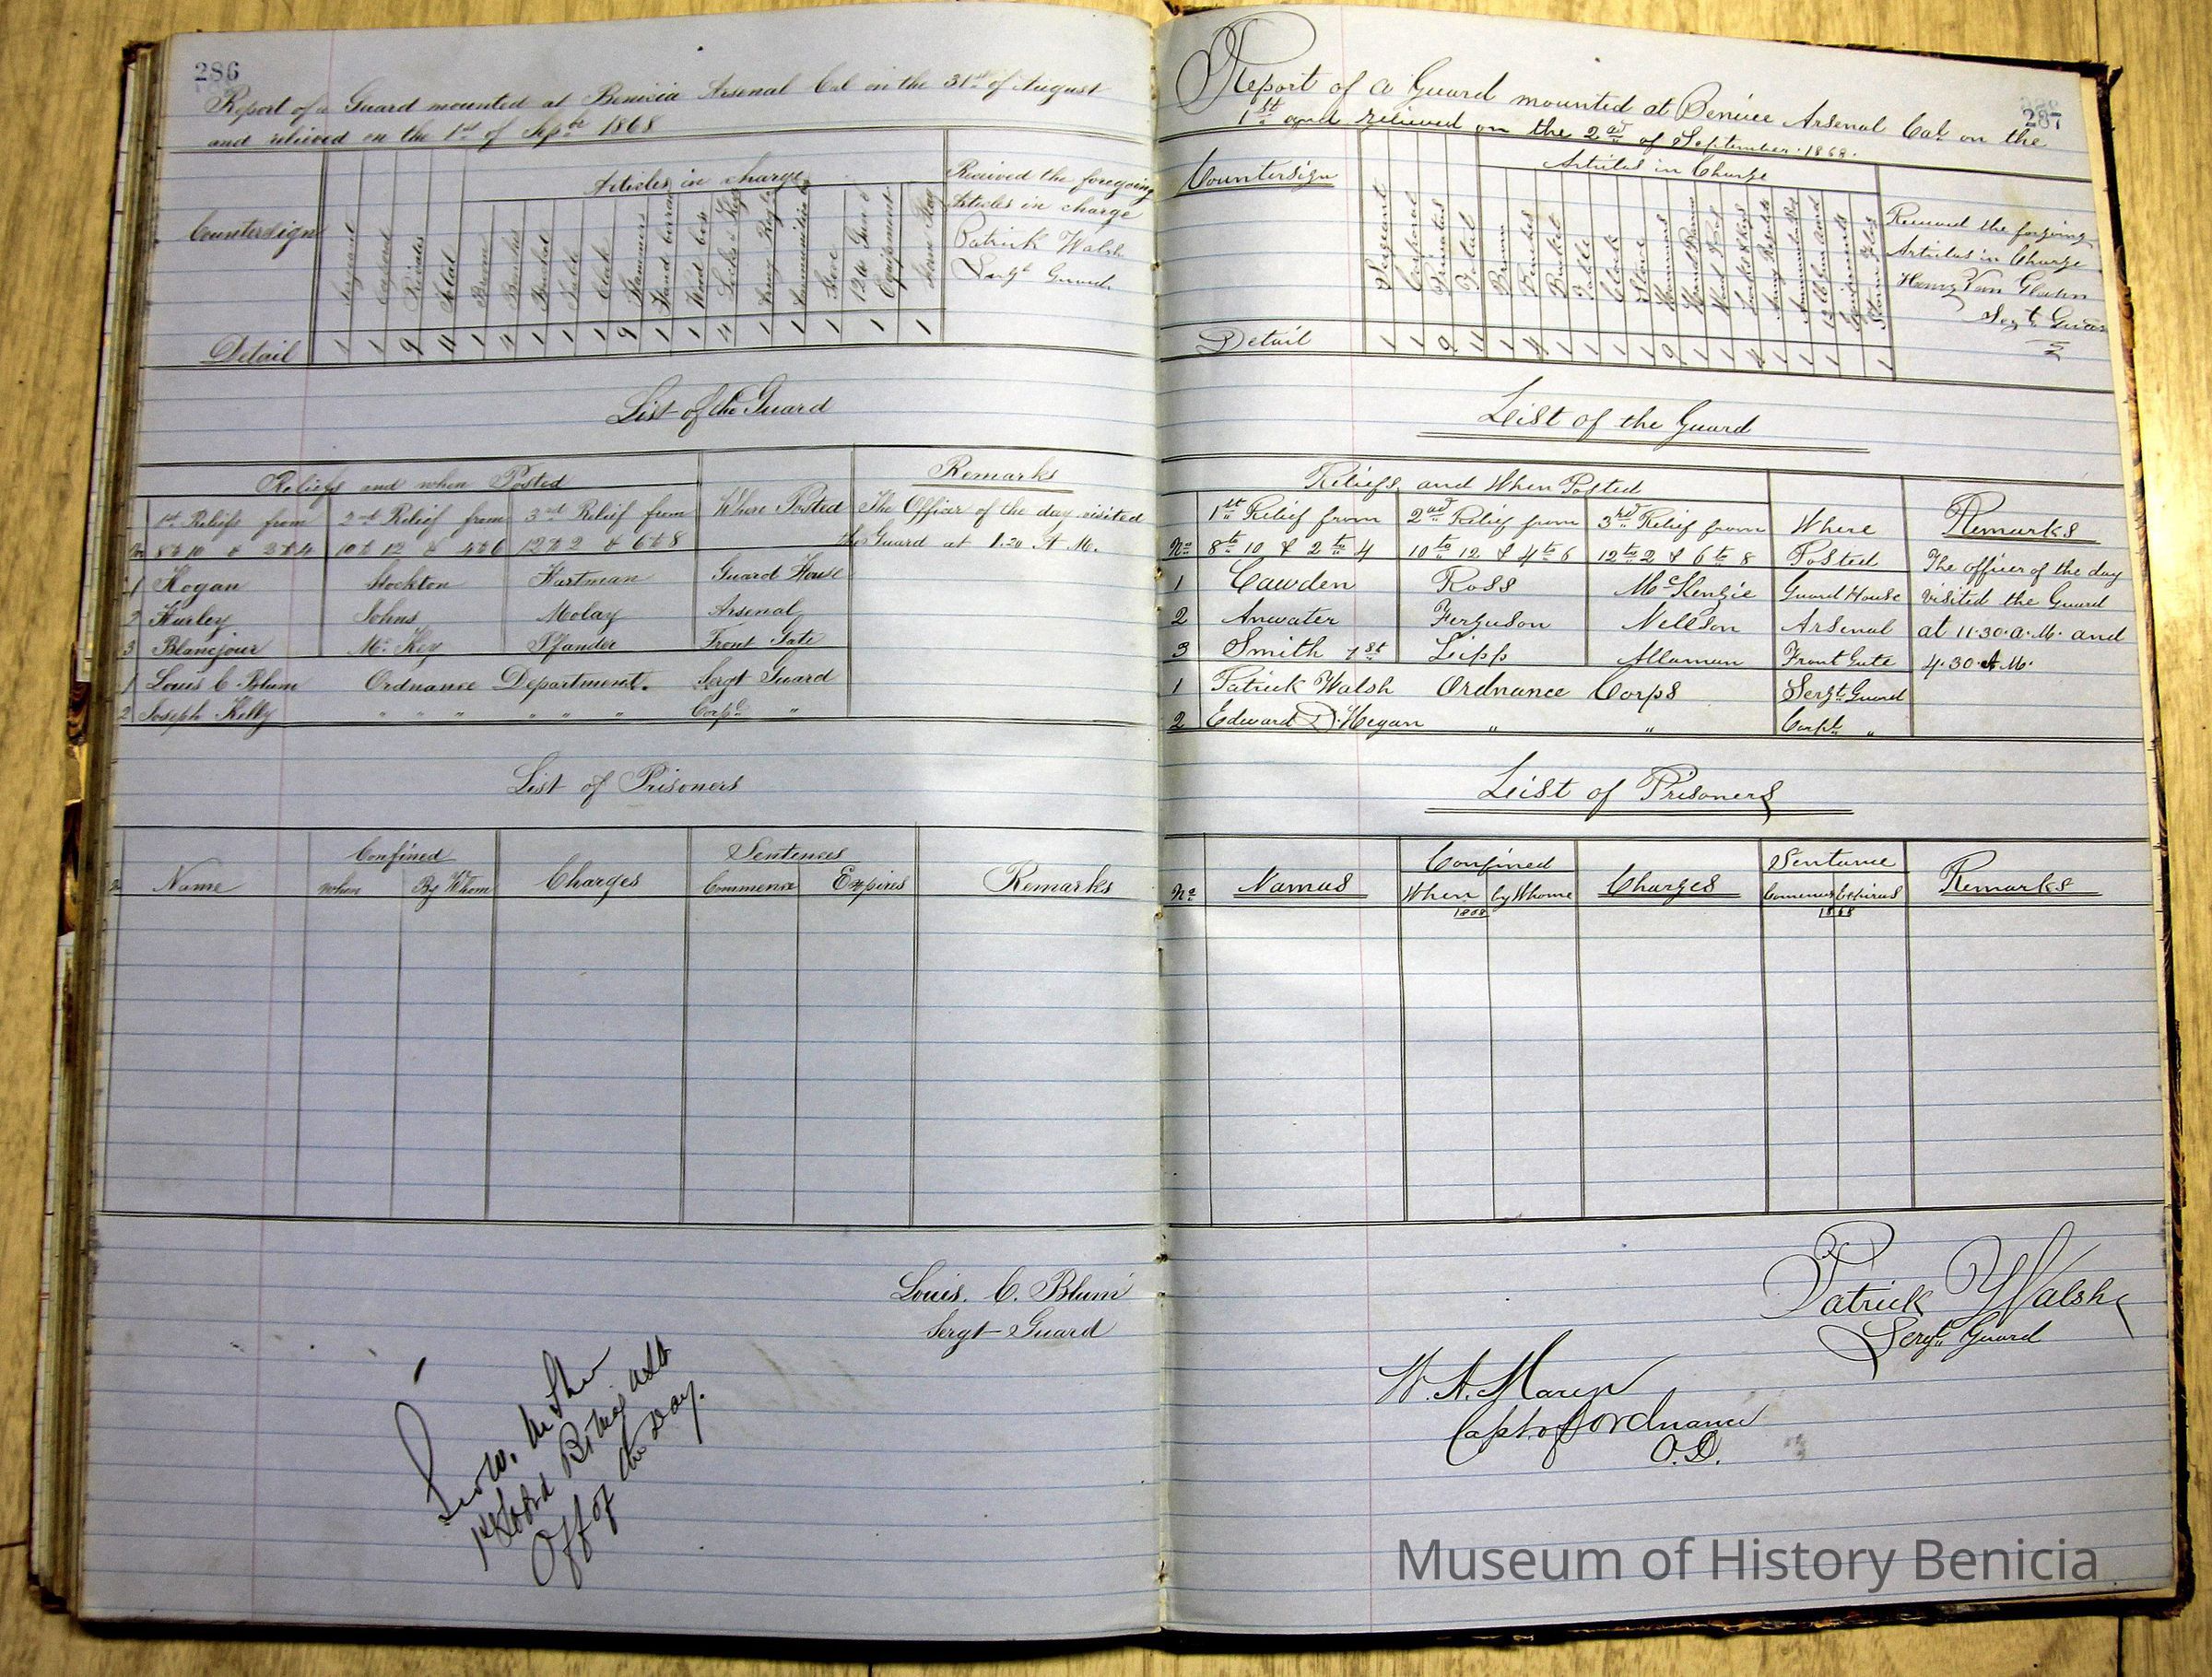 286
Report of a Guard mounted at Benicia Arsenal Cal on the 31st of August
and relieved on the 1st of Sepbr 1868
Countersign
Sergeant
Corporal
Privates
Total
Articles in charge
Broom
Benches
Bucket
Table
Clock
Hammers
Hand barrow
Wood box
Locks & Keys
Army Regltn
Ammunition box
Stove
12lb Gun &
Equipment
Storm Flag
Received the foregoing
Articles in charge
Patrick Walsh
Sergt Guard
Detail 1 1 9 11 1 4 1 1 1 9 1 1 4 1 1 1 1 1
List of the Guard
Reliefs and when Posted
Where Posted
Remarks
1st Reliefs from 2nd Relief from 3rd Relief from
No 8 to 10 & 2 to 4 10 to 12 & 4 to 6 12 to 2 & 6 to 8
The Officer of the day visited
the Guard at 1.20 A M.
1 Hogan Stockton Hartman Guard House
2 Hurley Johns Molay Arsenal
3 Blancjour Mc Key Pfander Front Gate
1 Louis C Blum Ordnance Department. Sergt Guard
2 Joseph Kelly " " " " " " Corpl "
List of Prisoners
Name
Confined
When By Whom
Charges
Sentences
Commence Expires
Remarks
Louis. C. Blum
Sergt Guard
Off of the Day.
287
Report of a Guard mounted at Benicia Arsenal Cal on the
1st and relieved on the 2nd of September 1868.
Countersign
Sergeant
Corporal
Privates
Total
Articles in Charge
Broom
Benches
Bucket
Table
Clock
Stove
Hammers
Hand Barrow
Wood Box
Locks & Keys
Army Regulatn
Ammunition Box
12 lb Gun and
Equipments
Storm Flag
Received the forgoing
Articles in Charge
Henry Von Glahn
Sergt Guard
Detail 1 1 9 11 1 4 1 1 1 1 9 1 1 4 1 1 1 1
List of the Guard
Reliefs and When Posted
1st Relief from 2nd Relief from 3rd Relief from Where Remarks
No 8 to 10 & 2 to 4 10 to 12 & 4 to 6 12 to 2 & 6 to 8 Posted
The officer of the day
visited the Guard
at 11.30. a.M. and
4.30. A.M.
1 Cawden Ross McKenzie Guard House
2 Anwater Ferguson Nellson Arsenal
3 Smith 1st Lipp Allaman Front Gate
1 Patrick Walsh Ordnance Corps Sergt Guard
2 Edward D. Hegan " " Corpl "
List of Prisoners
No Names
Confined
When by Whome
1868
Charges
Sentence
Comences Expires
1868
Remarks
Patrick Walsh
Sergt Guard
Capt of Ordnance
O.D.
Museum of History Benicia